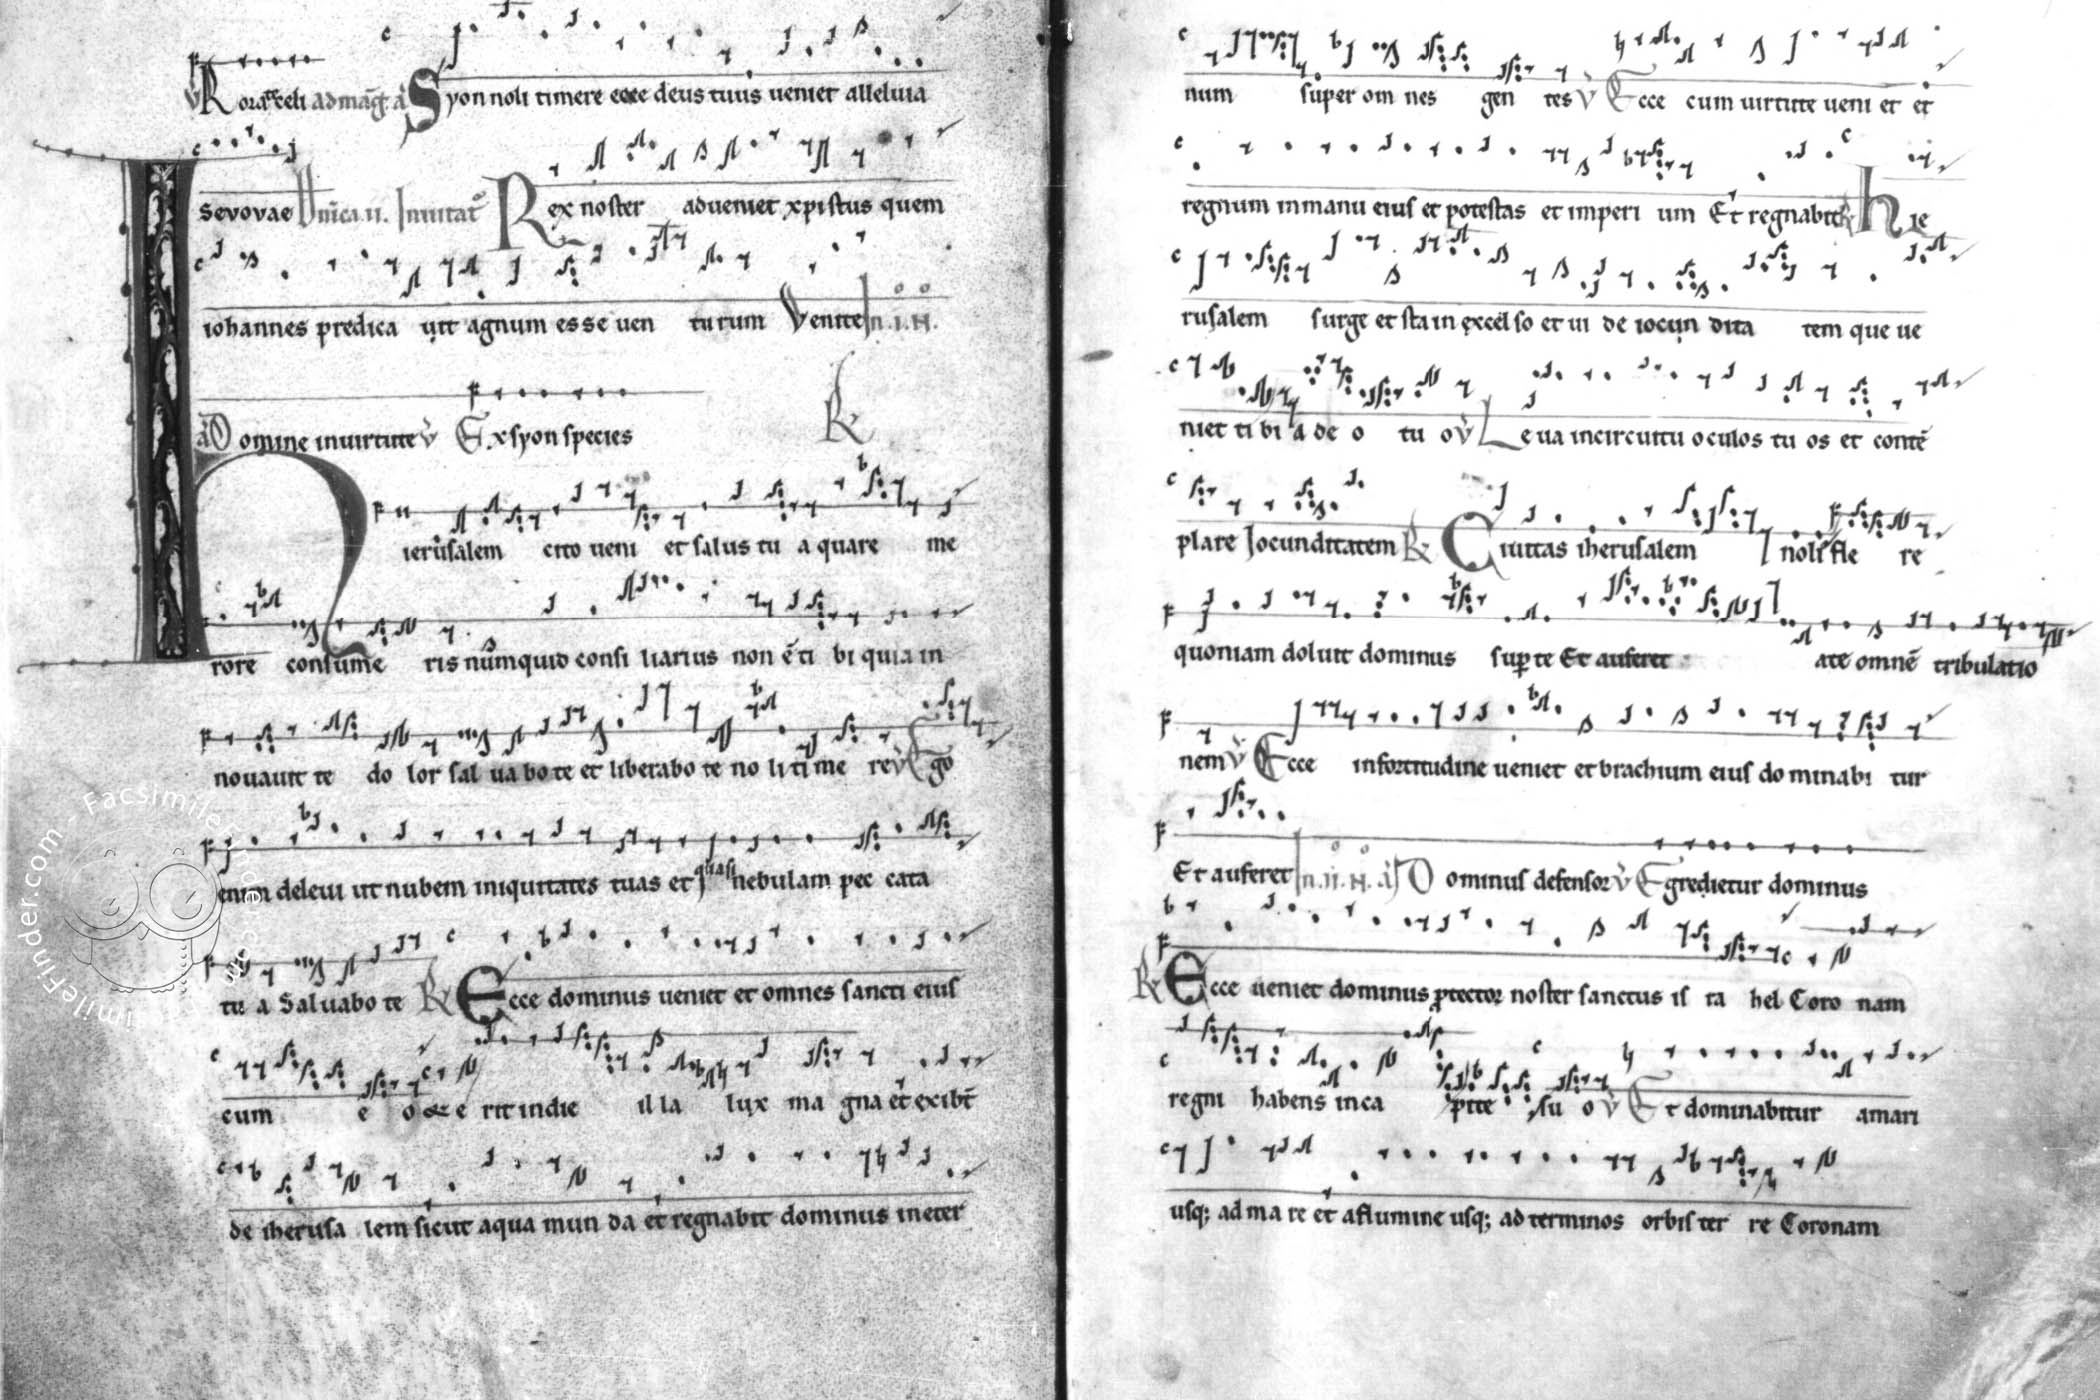 ℣ Rorate celi ad mag̅. a̅ Syon noli timere ecce deus tuus ueniet alleluia
sevovae Dn̅ica .ii. Inuitat̅ Rex noster adueniet xpistus quem
iohannes predica uit agnum esse uen turum Venite In .i. N̊.
a̅ Domine in uirtute ℣ Ex syon species ℟
ierusalem cito ueni et salus tu a quare me
rore consume ris numquid consi liarius non e̅ ti bi quia in
nouauit te do lor sal ua bo te et liberabo te no li ti me re ℣ Ego
enim deleui ut nubem iniquitates tuas et quasi nebulam pec cata
tu a Saluabo te ℟ Ecce dominus ueniet et omnes sancti eius
cum e o & e rit in die il la lux ma gna et exibt̅
de iherusa lem sicut aqua mun da et regnabit dominus in eter
num super om nes gen tes ℣ Ecce cum uirtute ueni et et
regnum in manu eius et potestas et imperi um Et regnabit ℟ hie
rusalem surge et sta in excel so et ui de iocun dita tem que ue
niet ti bi a de o tu o ℣ Leua in circuitu oculos tu os et conte̅
plare Iocunditatem ℟ Ciuitas iherusalem noli fle re
quoniam doluit dominus sup te Et auferet a te omne̅ tribulatio
nem ℣ Ecce in fortitudine ueniet et brachium eius do minabi tur
Et auferet In .ii. N̊. a̅ Dominus defensor ℣ Egredietur dominus
℟ Ecce ueniet dominus ptector noster sanctus is ra hel Coro nam
regni habens in ca pite su o ℣ Et dominabitur a mari
usq; ad ma re et a flumine usq; ad terminos orbis ter re Coronam
FacsimileFinder.com - FacsimileFinder.com